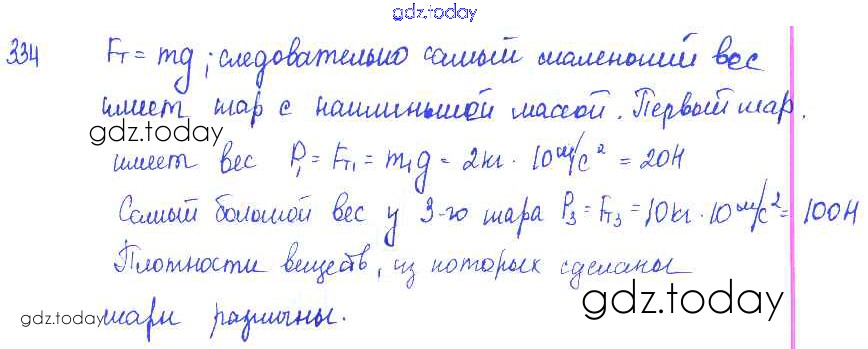 gdz.today
334 Fт = mg ; следовательно самый маленький вес
имеет шар с наименьшей массой. Первый шар.
gdz.today
имеет вес P₁ = Fт₁ = m₁g = 2кг · 10 м/с² = 20Н
Самый большой вес у 3-го шара P₃ = Fт₃ = 10кг · 10 м/с² = 100Н
Плотности веществ, из которых сделаны
gdz.today
gdz.today
шары различны.